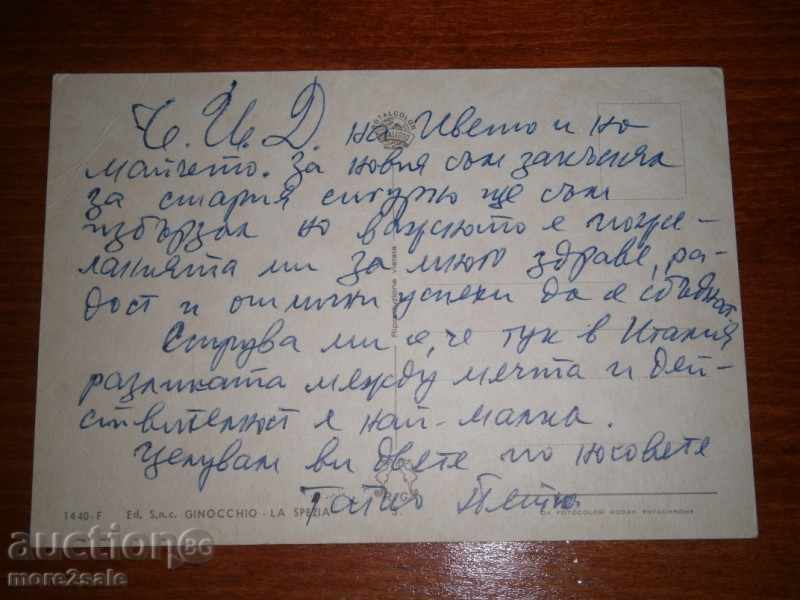 Ч. И. Д. на Ивето и на
майчето. За новия съм закъснял
за стария сигурно ще съм
избързал но важното е поже-
ланията ми за много здраве, ра-
дост и отлични успехи да се сбъднат.
Струва ми се, че тук в Италия
разликата между мечта и дей-
ствителност е най-малка.
Целувам ви двете по носовете
Татко Петьо
1440-F Ed. S.n.c. GINOCCHIO - LA SPEZIA
DA FOTOCOLOR KODAK EKTACHROME
Riproduzione vietata
TALCOLOR
Аукцион 86
more2sale